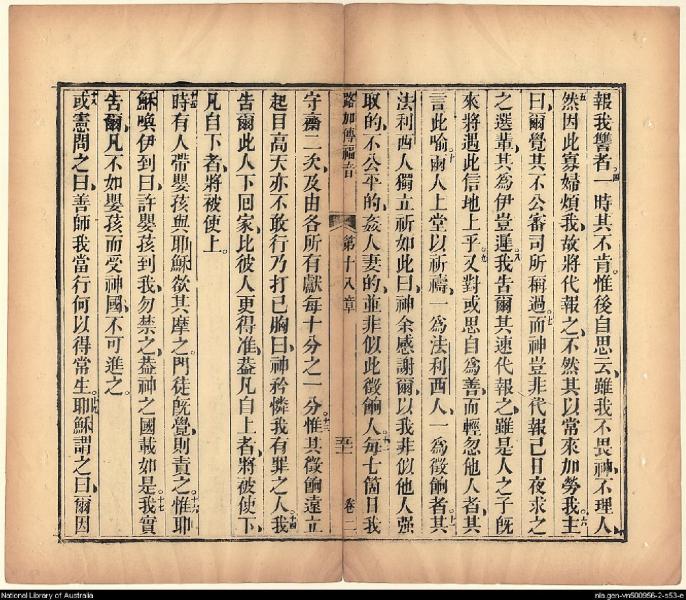 報我讐者四一時其不肯惟後自思云雖我不畏神不理人
五然因此寡婦煩我故將代報之不然其以常來加勞我六主
曰爾覺其不公審司所稱過七而神豈非代報己日夜求之
之選輩其為伊豈遲八我告爾其速代報之雖是人之子旣
來將遇此信地上乎九又對或思自為善而輕忽他人者其
言此喻十兩人上堂以祈禱一為法利西人一為徵餉者十一其
法利西人獨立祈如此曰神余感謝爾以我非似他人强
取的不公平的姦人妻的並非似此徵餉人十二每七箇日我
路加傳福音 第十八章 卷二
守齋二次及由各所有獻每十分之一分十三惟其徵餉遠立
起目高天亦不敢行乃打己胸曰神矜憐我有罪之人十四我
吿爾此人下回家比彼人更得准葢凡自上者將被使下
凡自下者將被使上
十五時有人帶嬰孩與耶穌欲其摩之門徒旣覺則責之十六惟耶
穌喚伊到曰許嬰孩到我勿禁之葢神之國載如是十七我實
吿爾凡不如嬰孩而受神國不可進之
十八或憲問之曰善師我當行何以得常生十九耶穌謂之曰爾因
National Library of Australia
nla.gen-vn500956-2-s53-e